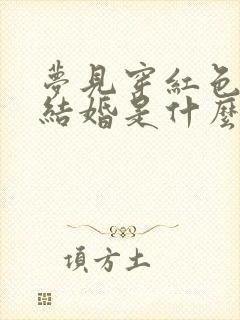 夢見穿紅色
結婚是什麼
項方土